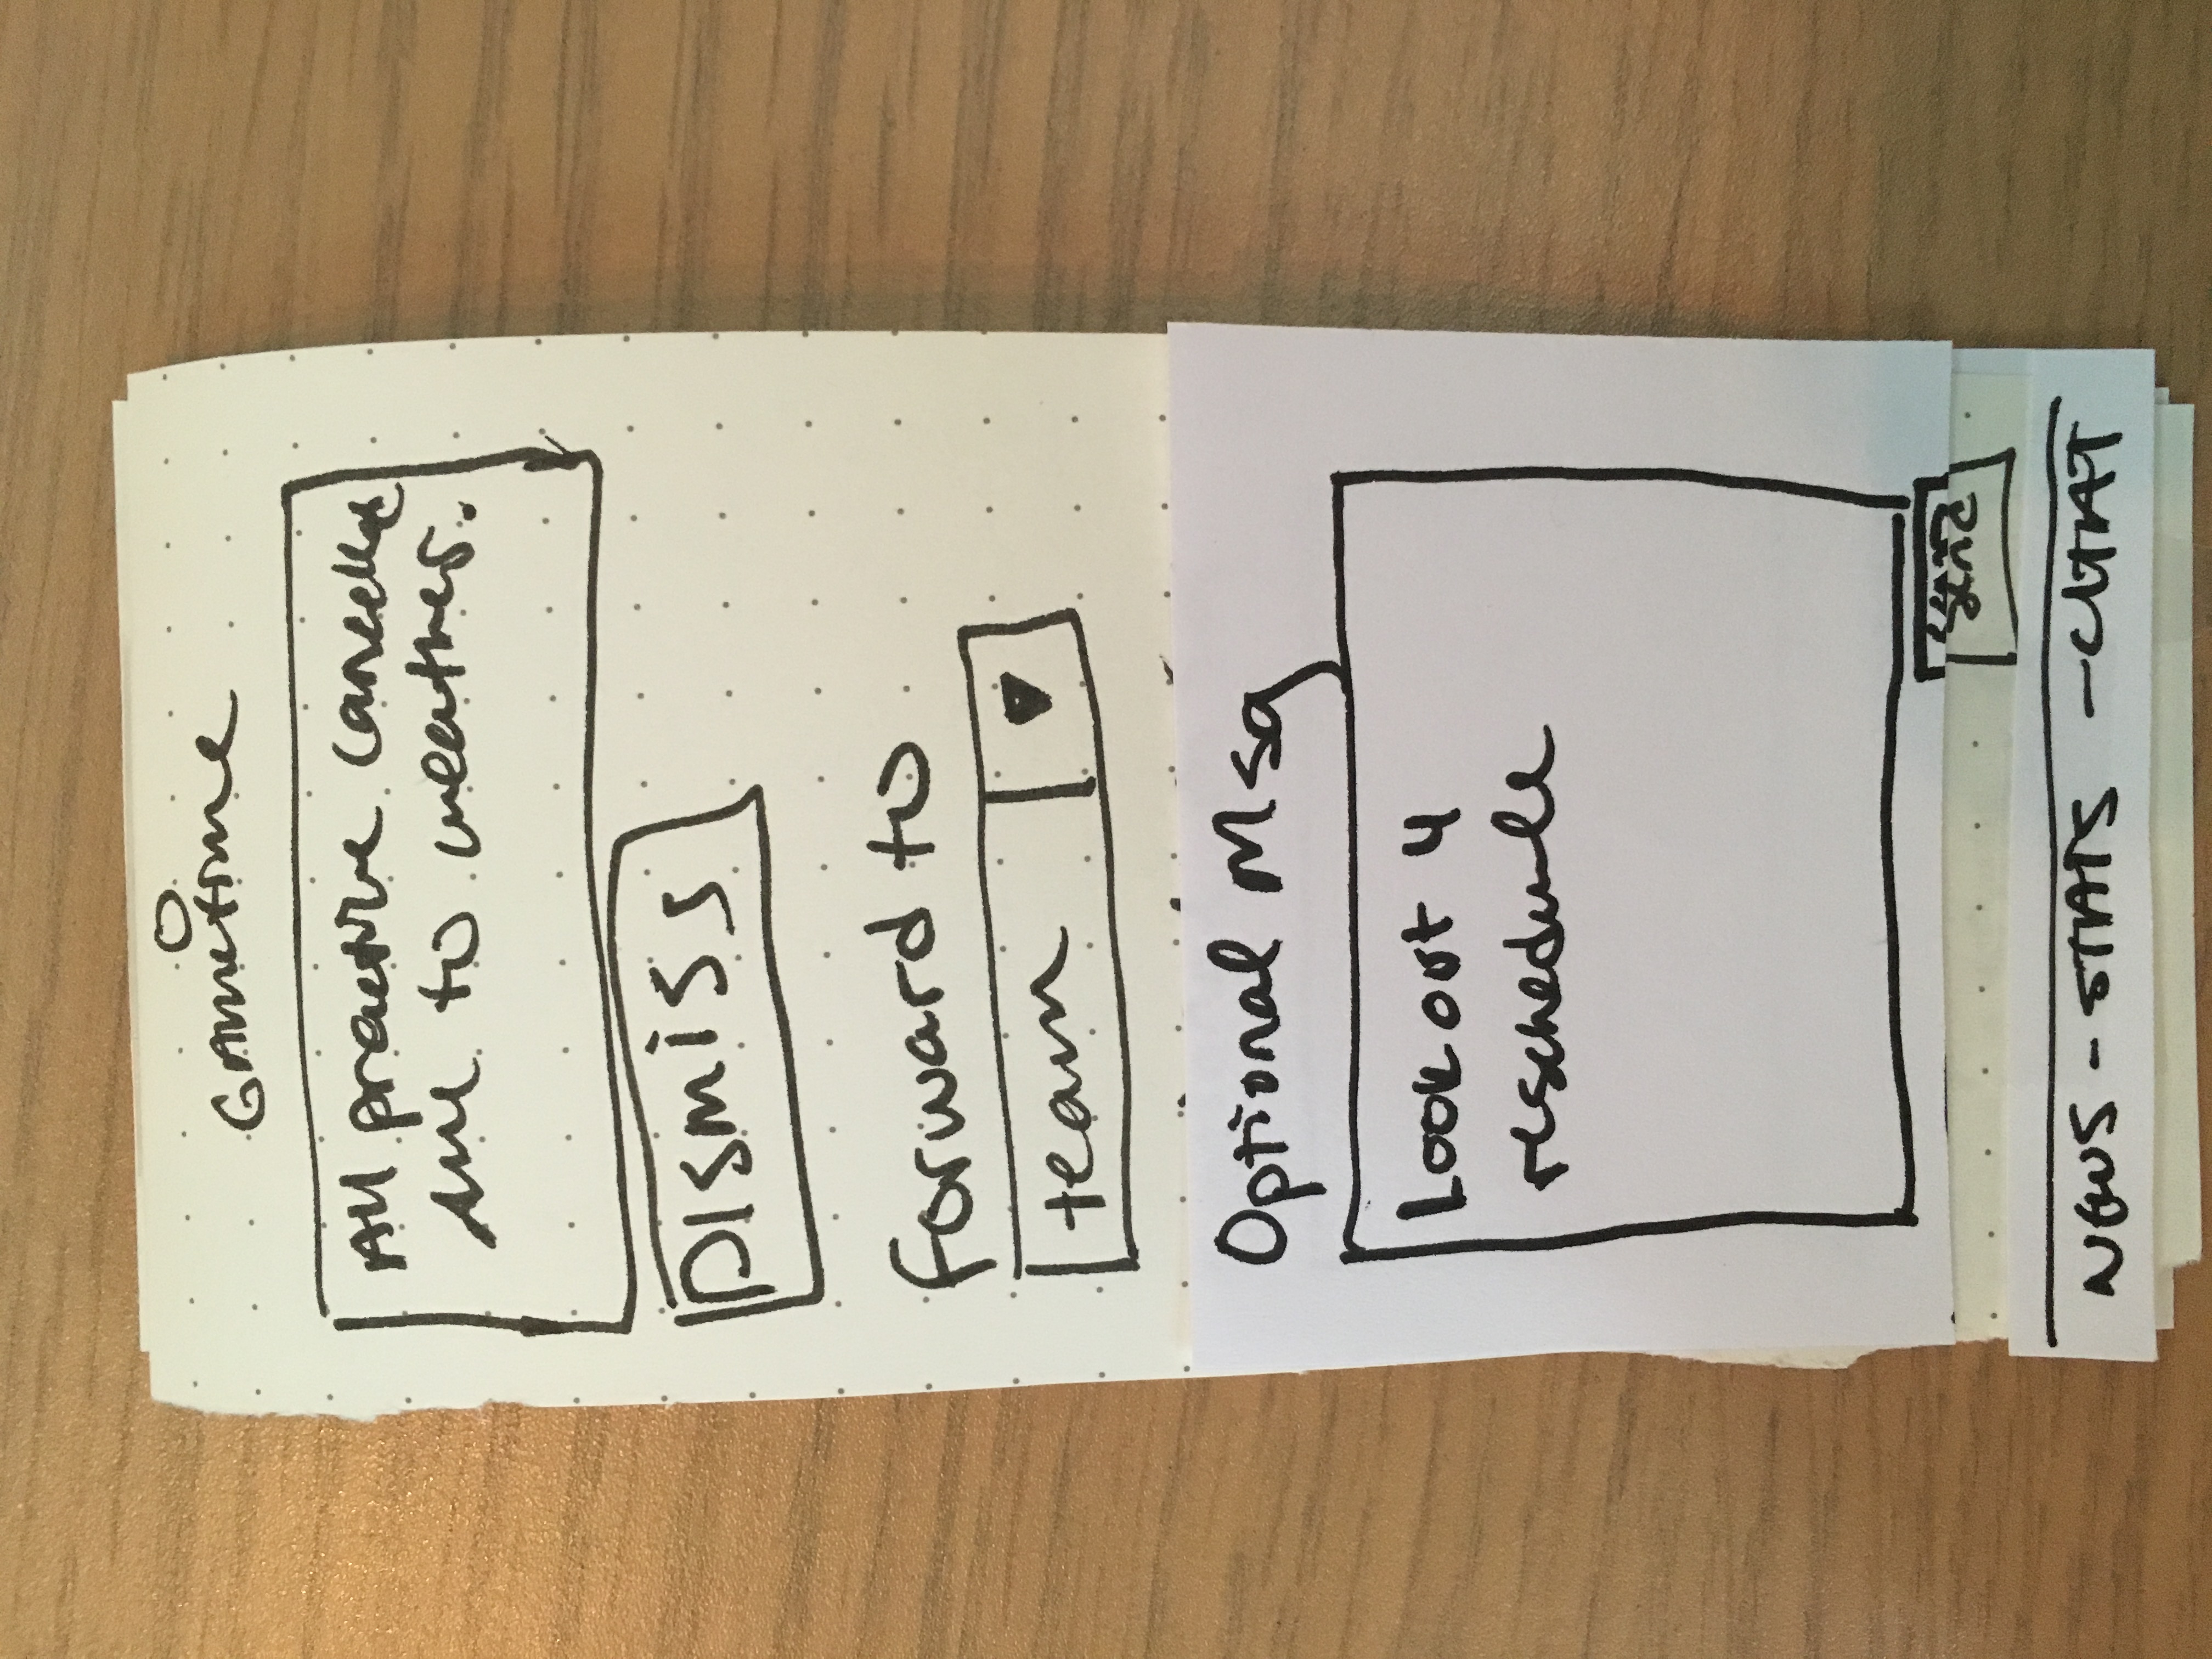 Gametime
All practice cancelled
due to weather.
Dismiss
Forward to
team
Optional Msg
Look out 4
reschedule
Send
NEWS - STATS - CHAT